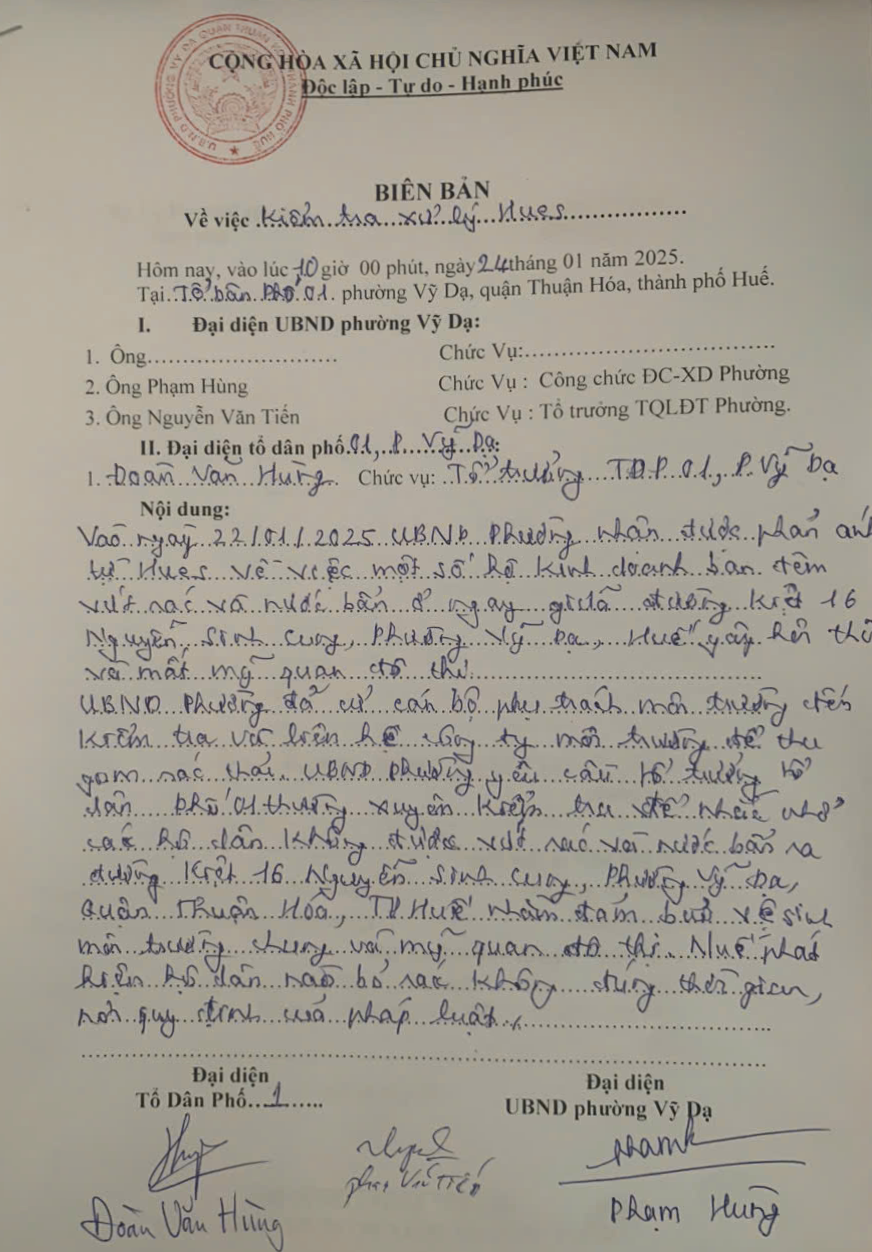 CỘNG HÒA XÃ HỘI CHỦ NGHĨA VIỆT NAM
Độc lập - Tự do - Hạnh phúc
U.B.N.D PHƯỜNG VỸ DẠ QUẬN THUẬN HÓA THÀNH PHỐ HUẾ
BIÊN BẢN
Về việc .Kiểm tra xử lý Hues..................
Hôm nay, vào lúc 10 giờ 00 phút, ngày 24 tháng 01 năm 2025.
Tại Tổ dân Phố 01. phường Vỹ Dạ, quận Thuận Hóa, thành phố Huế.
I. Đại diện UBND phường Vỹ Dạ:
1. Ông............................ Chức Vụ:....................................
2. Ông Phạm Hùng Chức Vụ : Công chức ĐC-XD Phường
3. Ông Nguyễn Văn Tiến Chức Vụ : Tổ trưởng TQLĐT Phường.
II. Đại diện tổ dân phố.01, P. Vỹ Dạ:
1. Đoàn Văn Hùng. Chức vụ: Tổ trưởng TDP 01, P. Vỹ Dạ
Nội dung:
Vào ngày 22/01/2025 UBND Phường nhận được phản ánh
từ Hues về việc một số hộ kinh doanh ban đêm
vứt rác và nước bẩn ở ngay giữa đường Kiệt 16
Nguyễn Sinh Cung, Phường Vỹ Dạ, Huế gây hôi thối
và mất mỹ quan đô thị.
UBND Phường đã cử cán bộ phụ trách môi trường đến
kiểm tra và liên hệ công ty môi trường để thu
gom rác thải. UBND Phường yêu cầu tổ trưởng tổ
dân phố 01 thường xuyên kiểm tra để nhắc nhở
các hộ dân không được vứt rác và nước bẩn ra
đường Kiệt 16 Nguyễn Sinh Cung, Phường Vỹ Dạ,
Quận Thuận Hóa, TP Huế nhằm đảm bảo vệ sinh
môi trường chung và mỹ quan đô thị. Nếu phát
hiện hộ dân nào bỏ rác không đúng thời gian,
nơi quy định của pháp luật.
Đại diện
Tổ Dân Phố...1......
Đại diện
UBND phường Vỹ Dạ
Đoàn Văn Hùng
Phạm Hùng